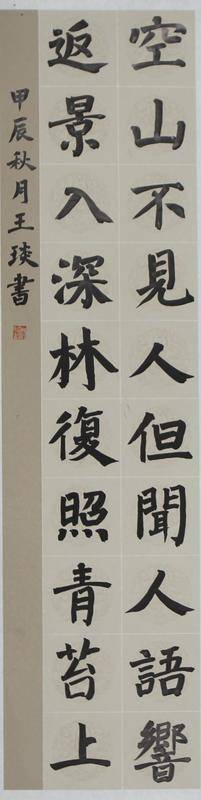 空山不見人但聞人語響
返景入深林復照青苔上
甲辰秋月王琰書